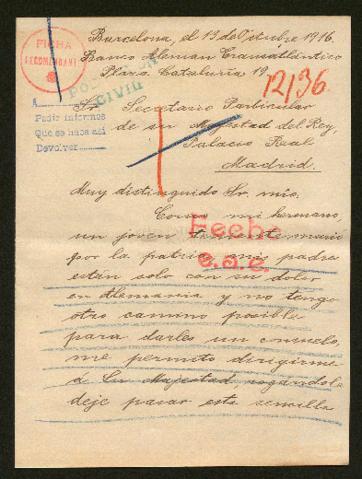 Barcelona, el 19 de Octubre 1916.
Banco Aleman Transatlántico
Plaza Cataluña 19
FICHA
12/36
CIVIL
A
Sr Secretario Particular
Pedir informes
de su Majestad del Rey
Que se haga así
Palacio Real
Devolver
Madrid.
Muy distinguido Sr. mio:
Como mi hermano,
Fecho
un joven teniente murió
por la patria mis padres
e.a.e.
están solo con su dolor
en Alemania y no tengo
otro camino posible
para darles un consuelo,
me permito dirigirme
á Su Majestad rogandole
deje pasar esta sencilla